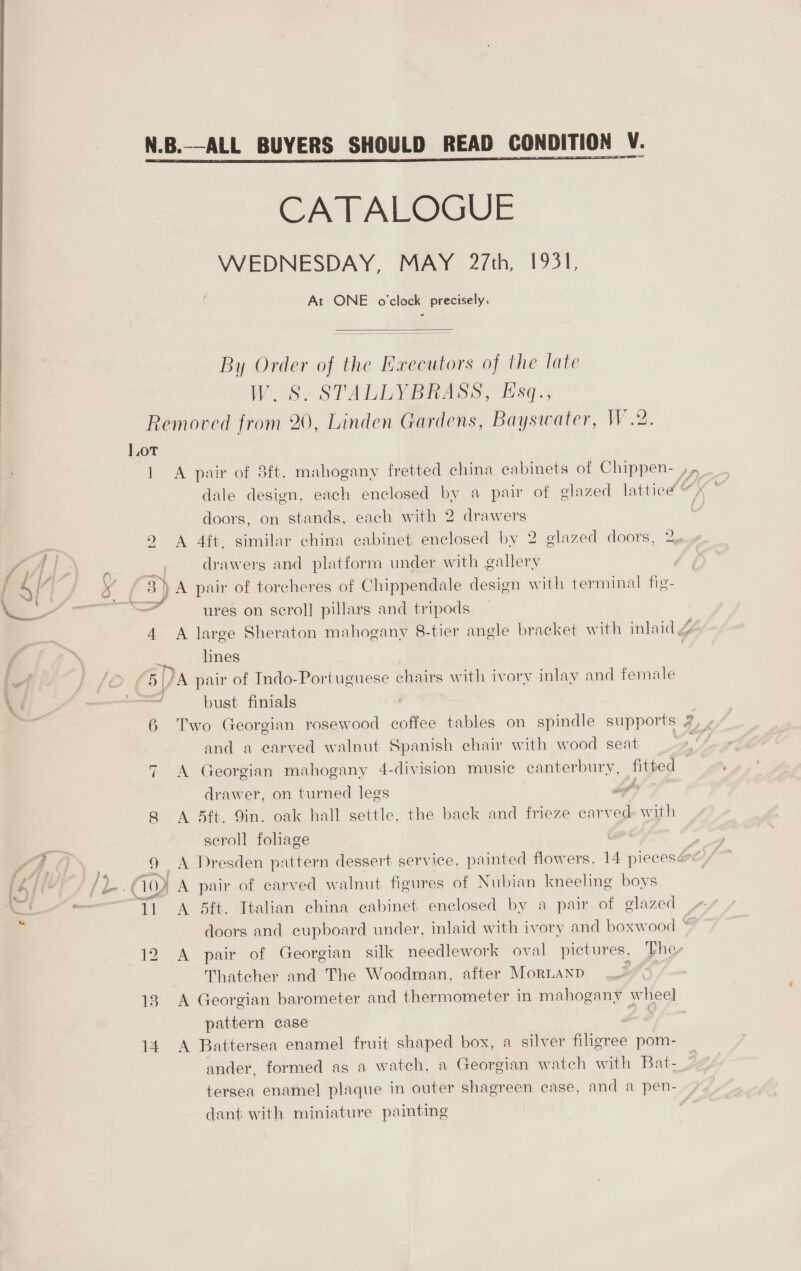 N.B.—ALL BUYERS SHOULD READ CONDITION V.
CATALOGUE
WEDNESDAY, MAY 27th, 1931,
At ONE o'clock precisely.
By Order of the Executors of the late
W. S. STALLYBRASS, Esq.,
Removed from 20, Linden Gardens, Bayswater, W.2.
LOT
1 A pair of 3ft. mahogany fretted china cabinets of Chippen-
dale design, each enclosed by a pair of glazed lattice
doors, on stands, each with 2 drawers
2 A 4ft. similar china cabinet enclosed by 2 glazed doors, 2
drawers and platform under with gallery
3 A pair of torcheres of Chippendale design with terminal fig-
ures on scroll pillars and tripods
4 A large Sheraton mahogany 8-tier angle bracket with inlaid
lines
5 A pair of Indo-Portuguese chairs with ivory inlay and female
bust finials
6 Two Georgian rosewood coffee tables on spindle supports
and a carved walnut Spanish chair with wood seat
7 A Georgian mahogany 4-division music canterbury, fitted
drawer, on turned legs
8 A 5ft. 9in. oak hall settle, the back and frieze carved with
scroll foliage
9 A Dresden pattern dessert service, painted flowers, 14 pieces
10 A pair of carved walnut figures of Nubian kneeling boys
11 A 5ft. Italian china cabinet enclosed by a pair of glazed
doors and cupboard under, inlaid with ivory and boxwood
12 A pair of Georgian silk needlework oval pictures, The
Thatcher and The Woodman, after MORLAND
13 A Georgian barometer and thermometer in mahogany wheel
pattern case
14 A Battersea enamel fruit shaped box, a silver filigree pom-
ander, formed as a watch, a Georgian watch with Bat-
tersea enamel plaque in outer shagreen case, and a pen-
dant with miniature painting